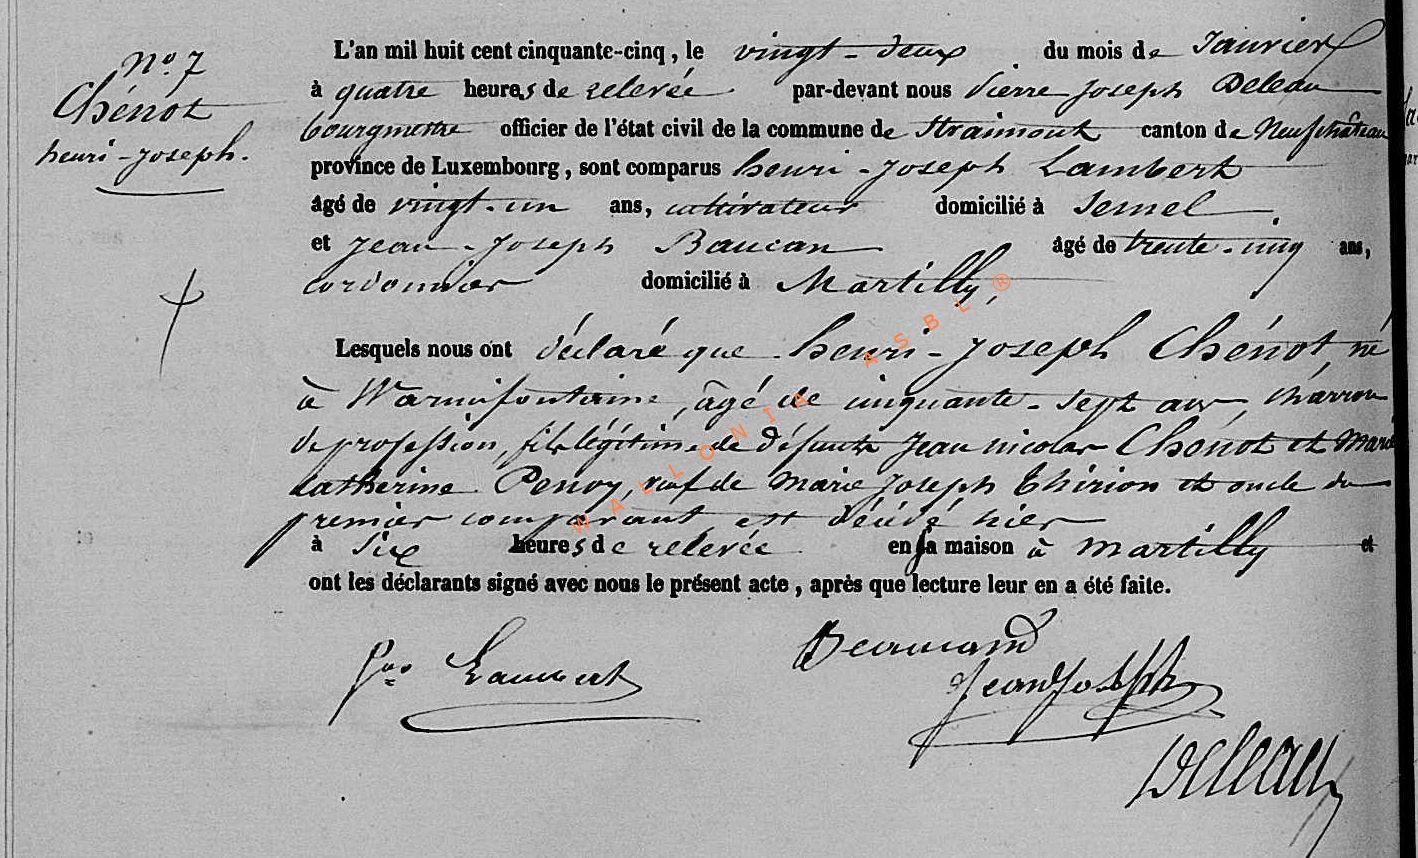 N.º 7
Chénot
henri-joseph.
L'an mil huit cent cinquante-cinq, le vingt-deux du mois de Janvier
à quatre heures de relevée par-devant nous Pierre Joseph Deleau
bourgmestre officier de l'état civil de la commune de Straimont canton de Neufchâteau
province de Luxembourg, sont comparus henri-joseph Lambert
âgé de vingt-un ans, cultivateur domicilié à Semel
et jean-joseph Baucan âgé de trente-cinq ans,
cordonnier domicilié à Martilly,
Lesquels nous ont déclaré que henri-joseph Chénot né
à Warmifontaine, âgé de cinquante-sept ans, charron
de profession, fils légitime de défunts jean nicolas Chénot et Marie
Catherine Penoy, veuf de Marie Joseph Thirion et oncle du
premier comparant, est décédé hier
à Six heures de relevée en sa maison à Martilly et
ont les déclarants signé avec nous le présent acte, après que lecture leur en a été faite.
Lambert
Jean Joseph
Deleau
WALLONIA ASBL ®